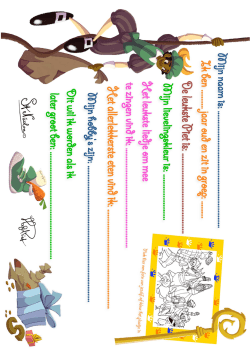 Mijn naam is: ..................
Ik ben ........ jaar oud en zit in groep: ........
De leukste Piet is: ..................
Mijn lievelingskleur is: ..................
Het leukste liedje om mee
te zingen vind ik: ..................
Het allerlekkerste eten vind ik: ..................
Mijn hobby's zijn: ..................
Dit wil ik worden als ik
later groot ben: ..................